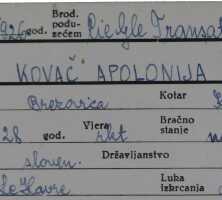 1926 god. Brod. podu- zećem Cie Gle Transat
KOVAČ APOLONIJA
Brezovica Kotar
28 god. Vjera rkt Bračno stanje
sloven. Državljanstvo
Le Havre Luka izkrcanja